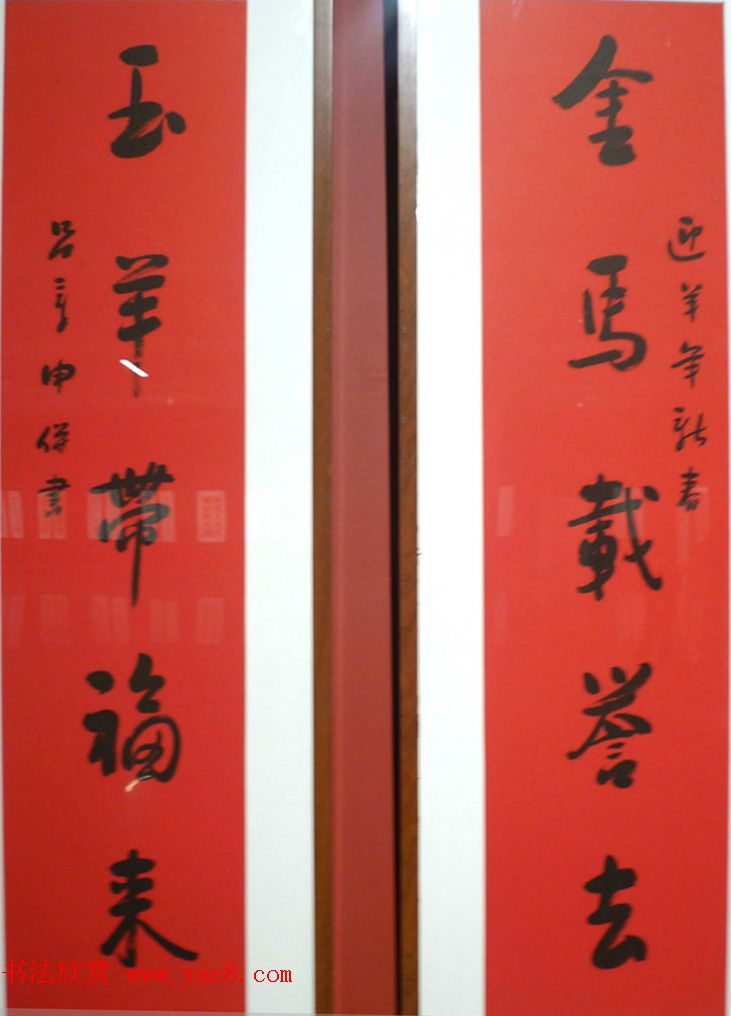 金馬載譽去
迎羊年新春
玉羊帶福来
吕章申併書
书法欣赏 www.yac8.com